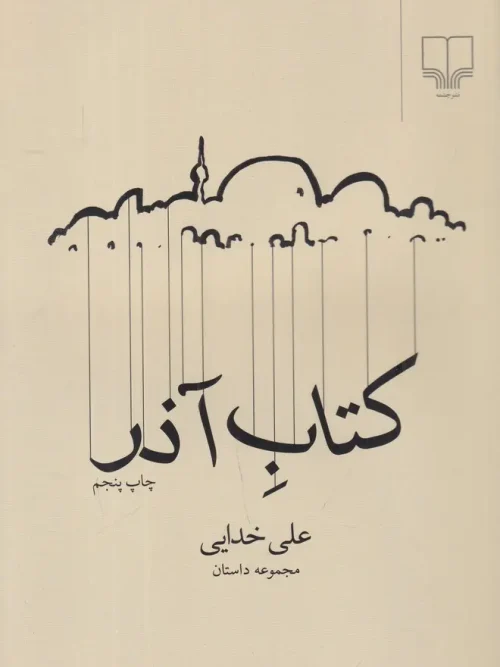 نشرچشمه
کتابِ آذر
چاپ پنجم
علی خدایی
مجموعه داستان